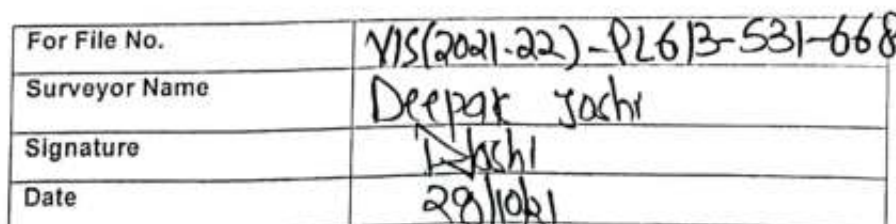 For File No. VIS(2021-22)-PL613-531-668
Surveyor Name Deepak Joshi
Signature Joshi
Date 29/10/21